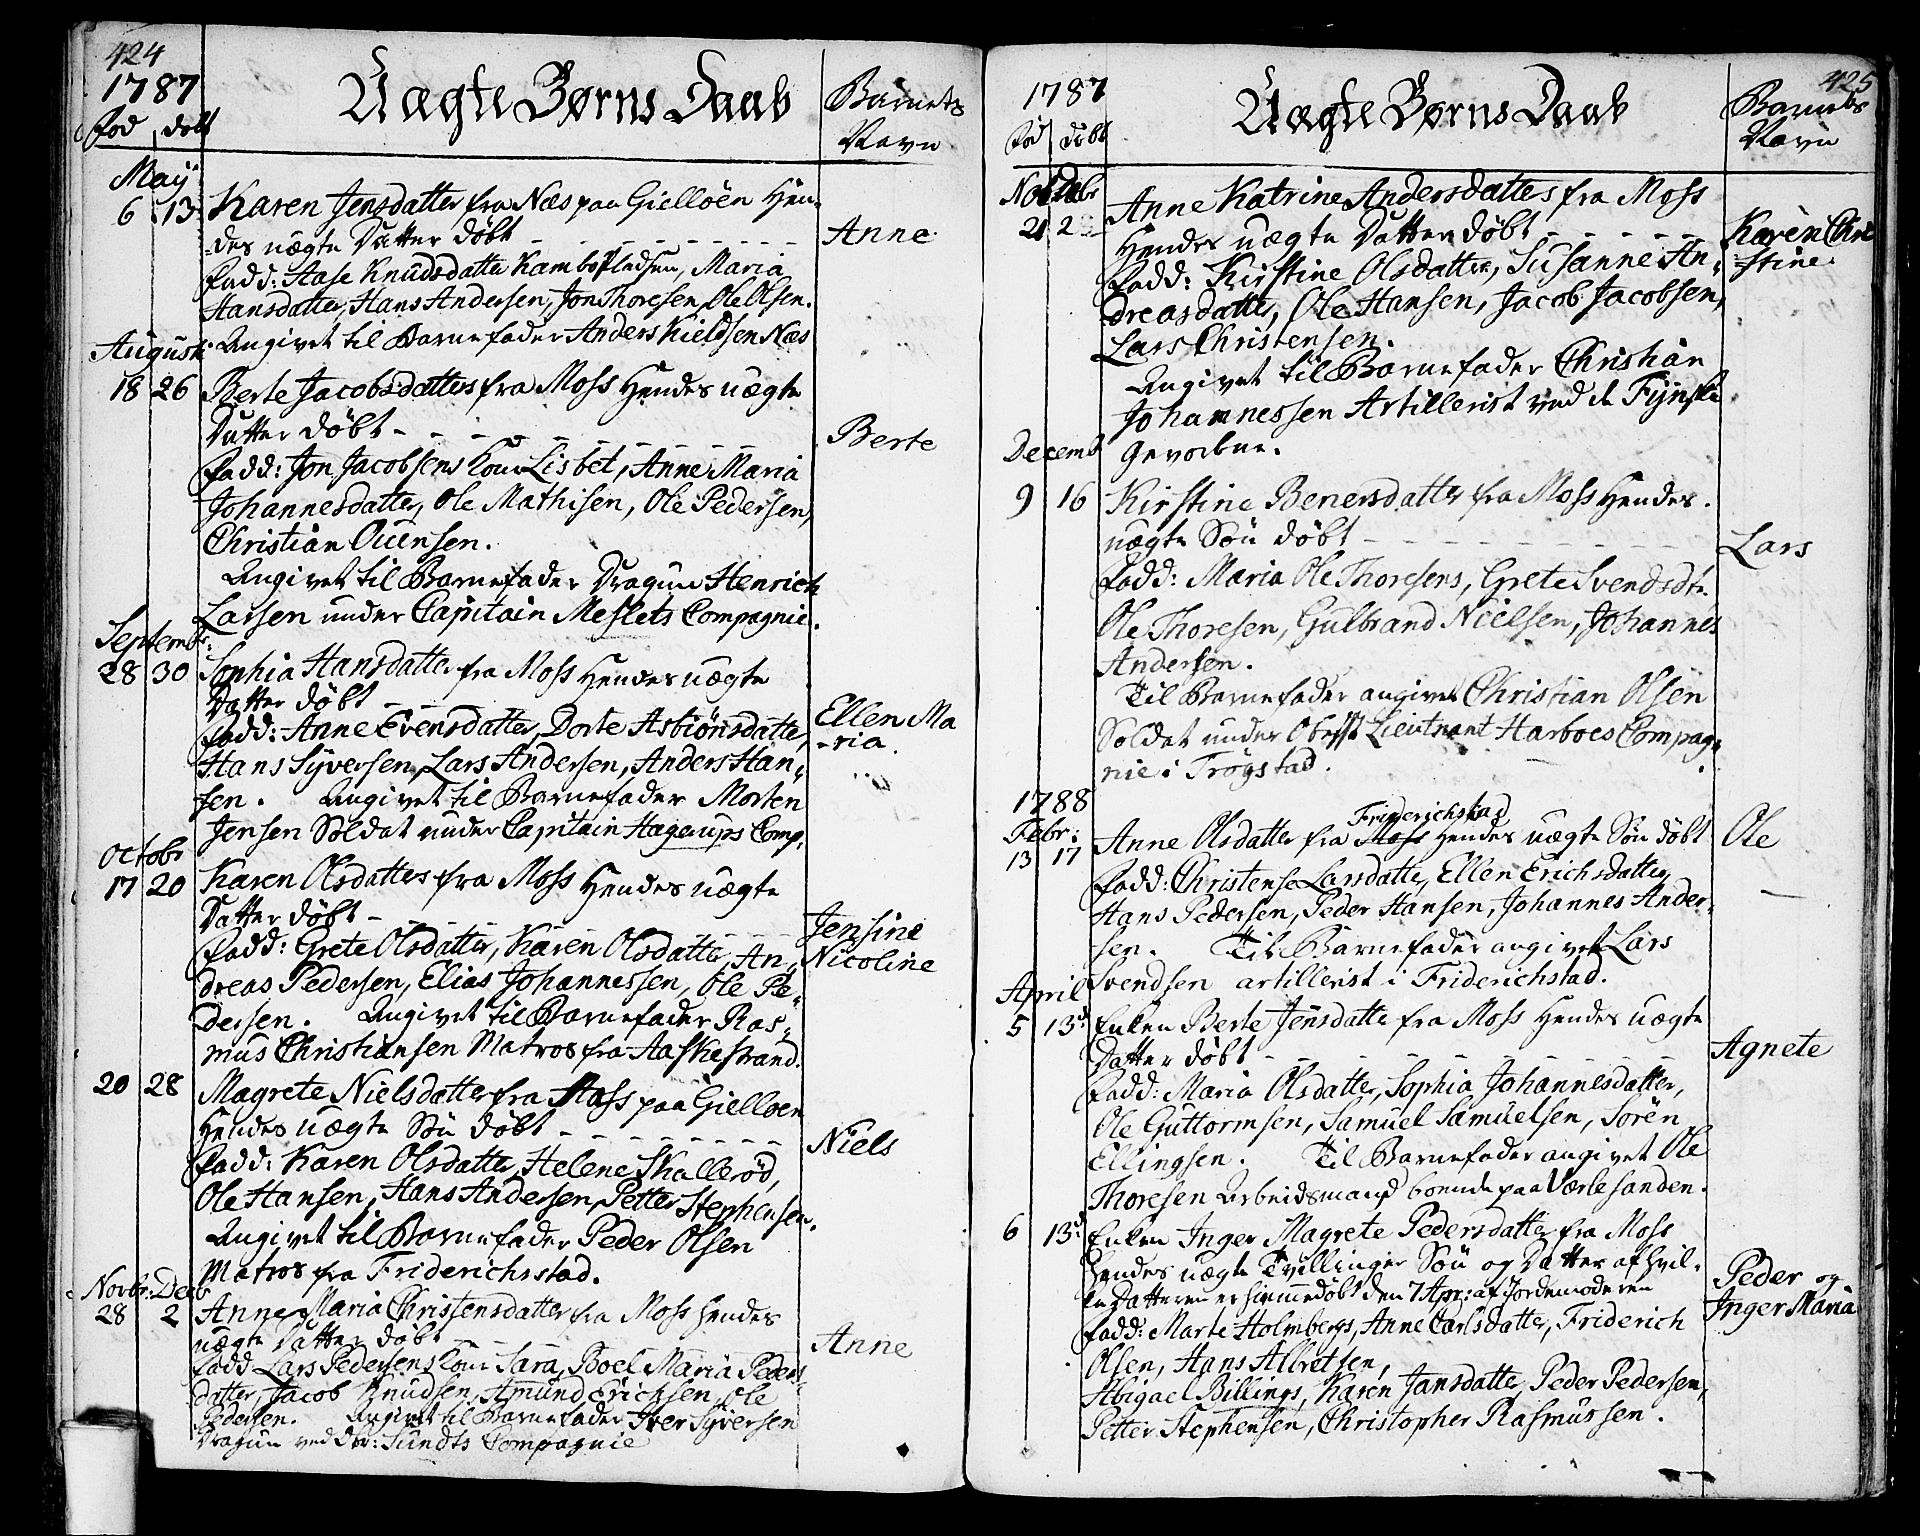 424
1787
Uægte Børns Daab
Barnets
Navn
Fød døbt
May
6 13 Karen Jensdatter fra Næs paa Gielløen Hen-
-des uægte Datter døbt
Anne
Fadd: Aase Knudsdatter Kambo Pladsen, Maria
Hansdatter, Hans Andersen, Jon Thoresen, Ole Olsen.
Angivet til Barnefader Anders Kieldsen Næs
August
18 26 Berte Jacobsdatter fra Moss Hendes uægte
Datter døbt
Berte
Fadd: Jon Jacobsens Kone Lisbet, Anne Maria
Johannesdatter, Ole Mathisen, Ole Pedersen,
Christian Ouensen.
Angivet til Barnefader Dragun Henrich
Larsen under Capitain Meslets Compagnie.
Septembr:
28 30 Sophia Hansdatter fra Moss Hendes uægte
Datter døbt
Ellen Ma
-ria.
Fadd: Anne Evensdatter, Dorte Asbiønsdatter,
Hans Syversen, Lars Andersen, Anders Han-
sen. Angivet til Barnefader Morten
Jensen Soldat under Capitain Hagerups Comp.
Octobr
17 20 Karen Olsdatter fra Moss Hendes uægte
Datter døbt
Jensine
Nicoline
Fadd: Grete Olsdatter, Karen Olsdatter, An-
dreas Pedersen, Elias Johannessen, Ole Pe-
dersen. Angivet til Barnefader Ras-
mus Christiansen Matros fra Aaskestrand.
20 28 Magrete Nielsdatter fra Moss paa Gielløen
Hendes uægte Søn døbt
Niels
Fadd: Karen Olsdatter, Helene Skallerød,
Ole Hansen, Hans Andersen, Petter Stephensen.
Angivet til Barnefader Peder Olsen
Matros fra Friderichsstad.
Novbr: Decb
28 2 Anne Maria Christensdatter fra Moss Hendes
uægte Datter døbt
Anne
Fadd Lars Pedersens Kone Sara, Boel Maria Peders-
datter, Jacob Knudsen, Amund Erichsen, Ole
Pedersen. Angivet til Barnefader Iver Syversen
Dragun ved Sundts Compagnie
425
1787
Uægte Børns Daab
Barnets
Navn
Fød døbt
21 2 Anne Katrine Andersdatter fra Moss
Hendes uægte Datter døbt
Karen Chri
-stine.
Fadd: Kirstine Olsdatter, Susanne An-
dreasdatter, Ole Hansen, Jacob Jacobsen,
Lars Christensen.
Angivet til Barnefader Christian
Johannessen Artillerist ved de Fynske
Gevorbne.
Decemb
9 16 Kirstine Benersdatter fra Moss Hendes
uægte Søn døbt
Lars
Fadd: Maria Ole Thoresens, Grete Svendsdtr.
Ole Thoresen, Gulbrand Nielsen, Johannes
Andersen.
Til Barnefader angivet Christian Olsen
Soldat under Oberst Lieutnant Harboes Compag-
nie i Trøgstad.
1788
Febr:
Friderichstad
13 17 Anne Olsdatter fra Moss Hendes uægte Søn døbt
Ole
Fadd: Christense Larsdatter, Ellen Erichsdatter,
Hans Pedersen, Peder Hansen, Johannes Ander-
sen. Til Barnefader angivet Lars
Svendsen artillerist i Friderichstad.
April
5 13d Enken Berte Jensdatter fra Moss Hendes uægte
Datter døbt
Agnete
Fadd: Maria Olsdatter, Sophia Johannesdatter,
Ole Guttormsen, Samuel Samuelsen, Søren
Ellingsen. Til Barnefader angivet Ole
Thoresen Arbeidsmand boende paa Værlesanden.
6 13d Enken Inger Magrete Pedersdatter fra Moss
Hendes uægte Tvillinger Søn og Datter af hvil-
ke Datteren er hiemmedøbt den 7 Apr: af Jordemoderen
Peder og
Inger Maria
Fadd: Marte Holmbergs, Anne Carlsdatter, Friderich
Olsen, Hans Albretsen,
Abigael Billings, Karen Jansdatter, Peder Pedersen,
Petter Stephensen, Christopher Rasmussen.